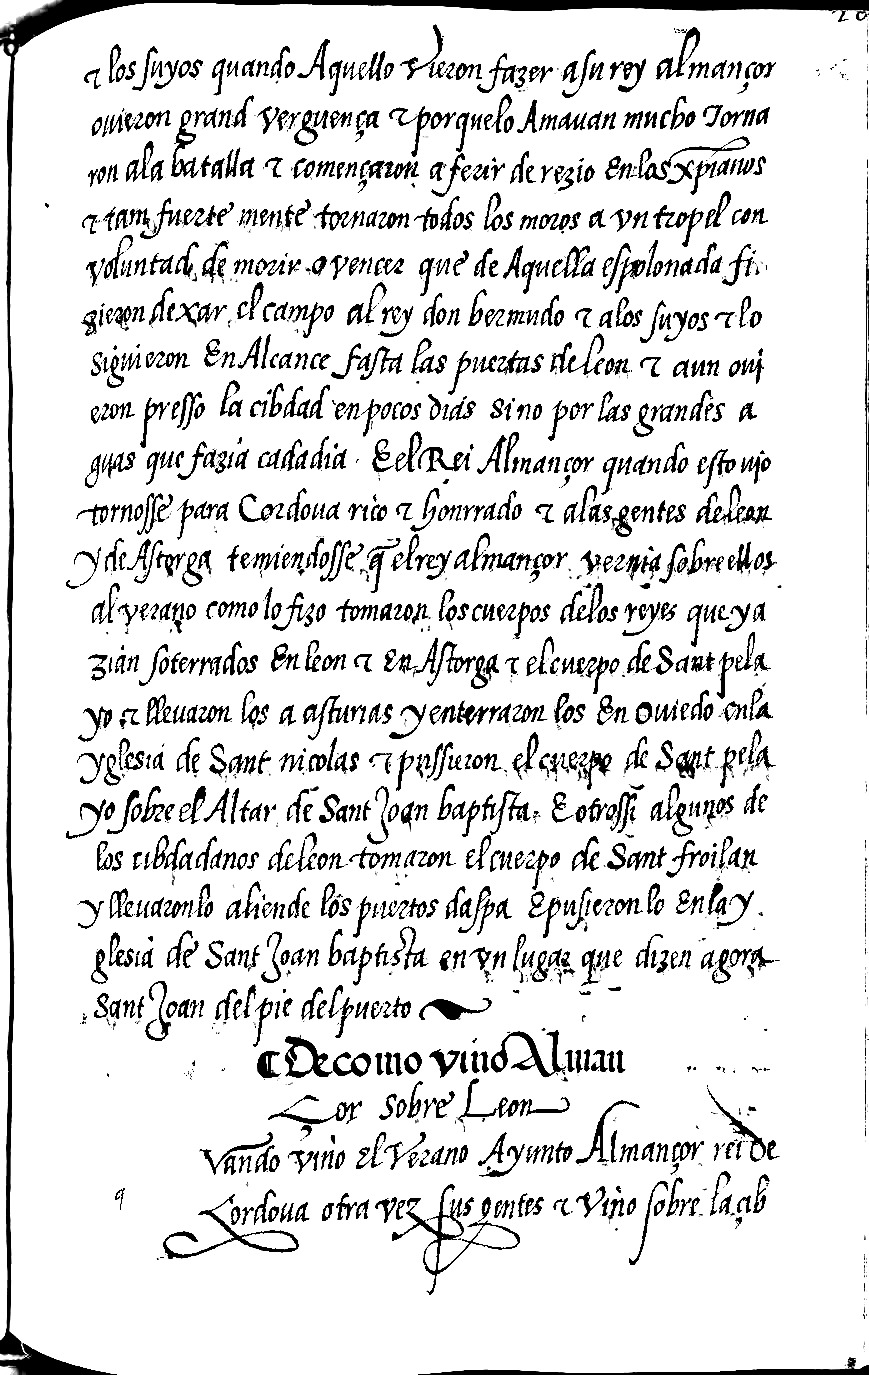 ⁊ los suyos quando Aquello vieron fazer a su rey almançor
ouieron grand verguença ⁊ porquelo Amauan mucho Torna
ron ala batalla ⁊ començaron a ferir de rezio En los xp̄ianos
⁊ tam fuerte mente tornaron todos los moros a vn tropel con
voluntad de morir o vencer que de Aquella espolonada fi
zieron dexar el campo al rey don bermudo ⁊ alos suyos ⁊ lo
siguieron En Alcance fasta las puertas de leon ⁊ aun oui
eron presso la cibdad en pocos dias sino por las grandes a
guas que fazia cadadia. E el Rei Almançor quando esto vio
tornosse para Cordoua rico ⁊ honrrado ⁊ alas gentes de leon
y de Astorga temiendosse q̄ el rey almançor vernia sobre ellos
al verano como lo fizo tomaron los cuerpos delos reyes que ya
zian soterrados En leon ⁊ En Astorga ⁊ el cuerpo de Sant pela
yo ⁊ llevaron los a asturias y enterraron los En Oviedo en la
yglesia de Sant nicolas ⁊ pussieron el cuerpo de Sant pela
yo sobre el Altar de Sant Joan baptista. E otrossi algunos de
los cibdadanos de leon tomaron el cuerpo de Sant froilan
y llevaronlo aliende los puertos daspa E pusieron lo En la y
glesia de Sant Joan baptista en vn lugar que dizen agora
Sant Joan del pie del puerto
¶ De como vino Alman
Çor sobre Leon
vando vino el Verano Ayunto Almançor rei de
Cordoua otra vez sus gentes ⁊ vino sobre la çib
q